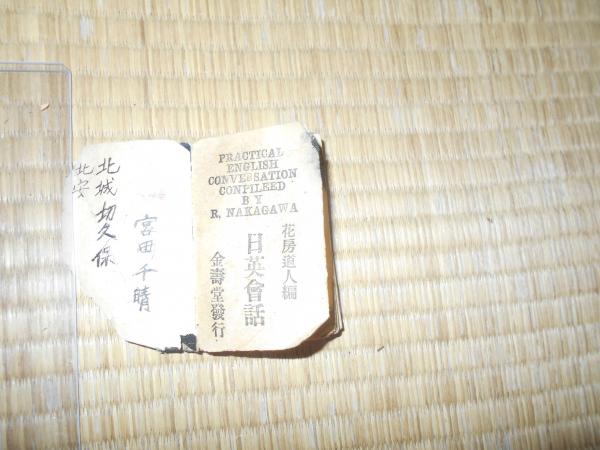 PRACTICAL
ENGLISH
CONVERSATION
CONPILEED
BY
R. NAKAGAWA
花房道人編
日英會話
金壽堂發行.
北安
北城切久保
宮田千晴